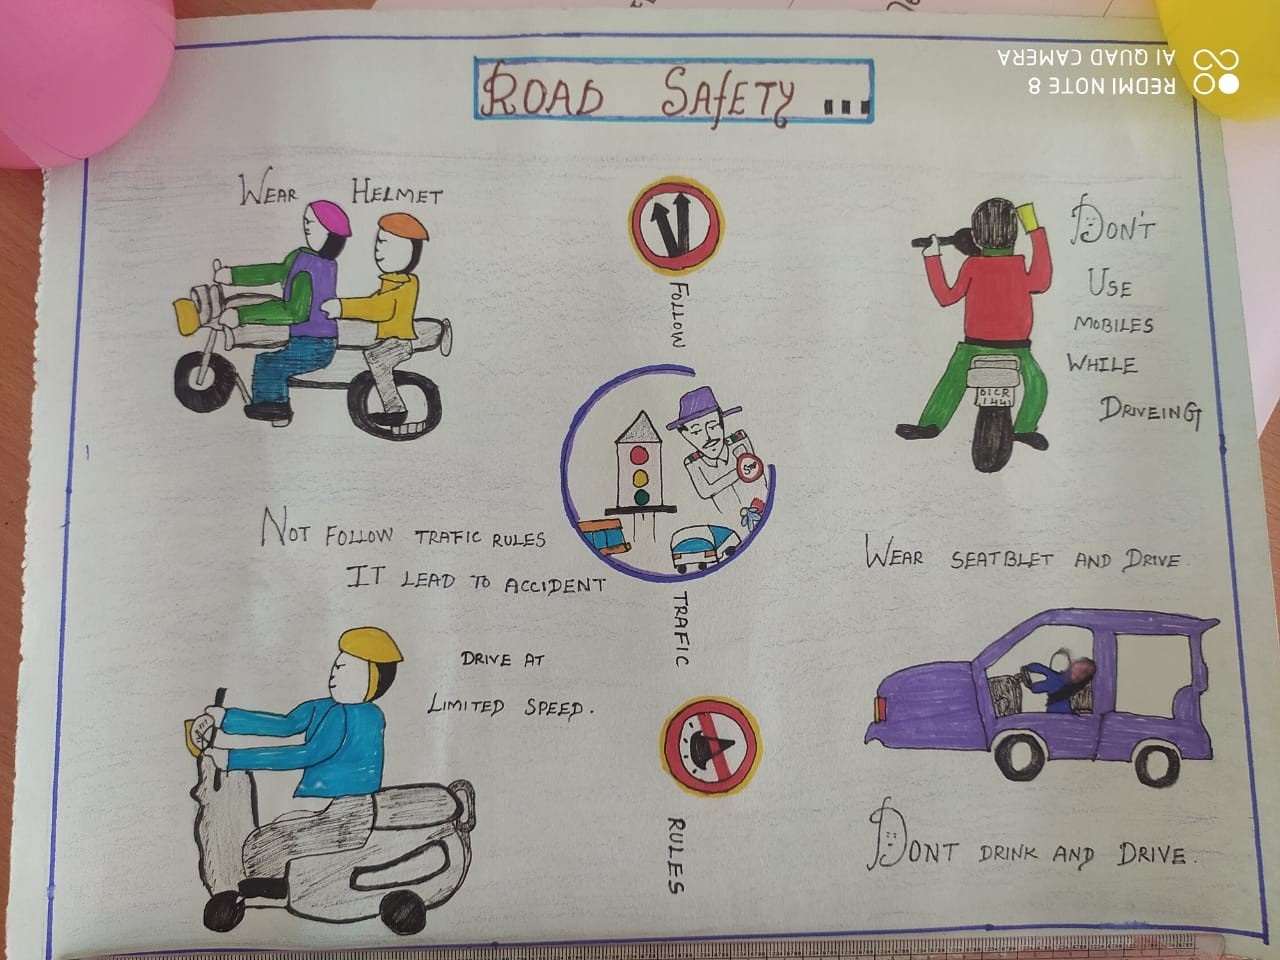 ROAD SAFETY ...
WEAR HELMET
DON'T
USE
MOBILES
WHILE
DRIVEING
FOLLOW
TRAFIC
RULES
NOT FOLLOW TRAFIC RULES
IT LEAD TO ACCIDENT
WEAR SEATBLET AND DRIVE.
DRIVE AT
LIMITED SPEED.
DONT DRINK AND DRIVE.
REDMI NOTE 8
AI QUAD CAMERA